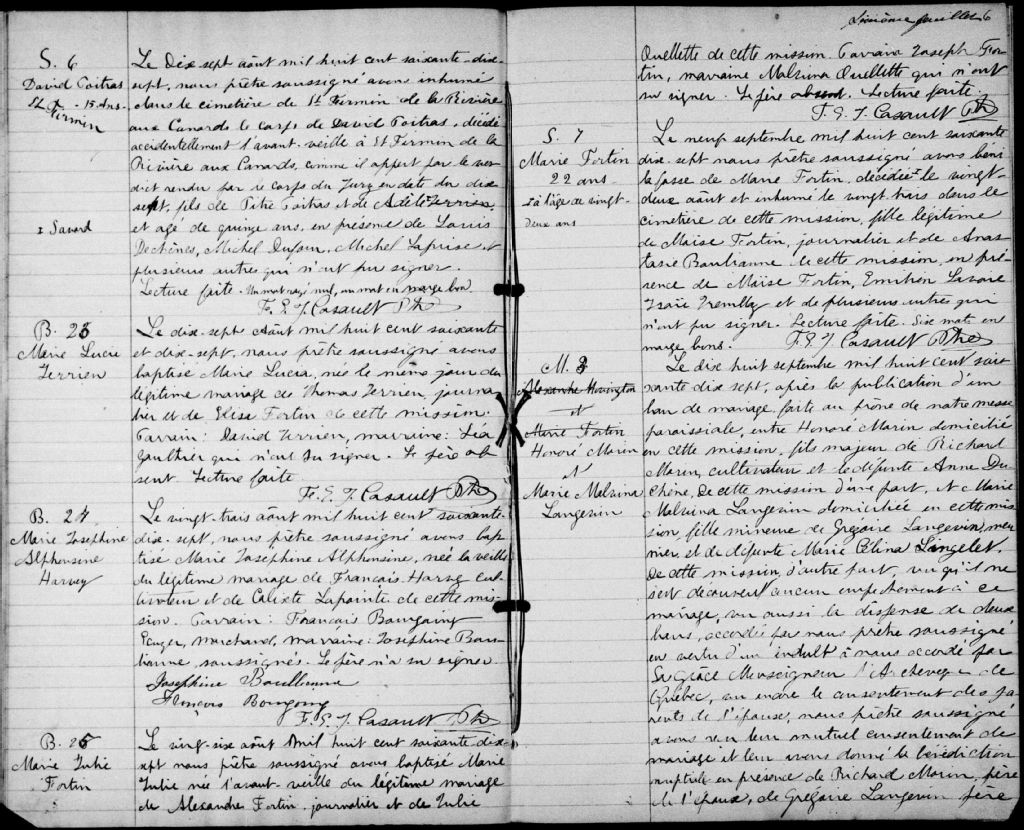 S. 6
David Poitras
St F. - 15 Ans.
Firmin
Le Dix-sept août mil huit cent soixante-dix-
sept, nous prêtre soussigné avons inhumé
dans le cimetière de St Firmin de la Rivière
aux Canards le corps de David Poitras, décédé
accidentellement l'avant-veille à St Firmin de la
Rivière aux Canards, comme il appert par le ver-
dict rendu par le corps du Jury en date du dix
sept, fils de Pitre Poitras et de Adèle Terrien
et agé de quinze ans, en présence de Louis
Dechênes, Michel Dufour, Michel Laprise et
plusieurs autres qui n'ont pu signer.
Lecture faite. Un mot rayé nul, un mot en marge bon
F. E. J. Casault Ptre
x Savard
B. 23
Marie Lucia
Terrien
Le dix-sept Août mil huit cent soixante
et dix-sept, nous prêtre soussigné avons
baptisé Marie Lucia, née le même jour du
légitime mariage de Thomas Terrien, journa-
lier et de Elise Fortin de cette mission.
Parrain: David Terrien, marraine: Léa
Gaulthier qui n'ont su signer. Le père ab
sent. Lecture faite
F. E. J. Casault Ptre
B. 24
Marie Joséphine
Alphonsine
Harvey
Le vingt-trois août mil huit cent soixante-
dix-sept, nous prêtre soussigné avons bap
tisé Marie Joséphine Alphonsine, née la veille
du légitime mariage de François Harvey Cul
tivateur et de Calixte Lapointe de cette mis-
sion. Parrain: François Bourgoing
Ecuyer, marchand, marraine: Joséphine Boul-
ianne, soussignés. Le père n'a su signer.
Josephine Boullianne
François Bourgoing
F. E. J. Casault Ptre
B. 25
Marie Julie
Fortin
Le vingt-six août mil huit cent soixante dix-
sept nous prêtre soussigné avons baptisé Marie
Julie née l'avant-veille du légitime mariage
de Alexandre Fortin, journalier et de Julie
Sixième feuillet 6
Ouellette de cette mission. Parrain Joseph For-
tin, marraine Malvina Ouellette qui n'ont
su signer. Le père absent. Lecture faite.
F. E. J. Casault Ptre
S. 7
Marie Fortin
22 ans
x à l'âge de vingt-
deux ans
Le neuf septembre mil huit cent soixante
dix sept nous prêtre soussigné avons béni
la fosse de Marie Fortin, décédée x le vingt-
deux août et inhumé le vingt trois dans le
cimetière de cette mission, fille légitime
de Moïse Fortin, journalier et de Anas-
tasie Boulianne de cette mission, en pré-
sence de Moïse Fortin, Emilien Savoie
Isaïe Tremblay et de plusieurs autres qui
n'ont pu signer. Lecture faite. Six mots en
marge bons. F. E. J. Casault Ptre
M. 3
Alexandre Hovington
et
Marie Fortin
Honoré Morin
&
Marie Malvina
Langevin
Le dix huit septembre mil huit cent soix-
xante dix sept, après la publication d'un
ban de mariage, faite au prône de notre messe
paroissiale, entre Honoré Morin domicilié
en cette mission, fils majeur de Richard
Morin, cultivateur et de défunte Anne Du-
chêne, de cette mission d'une part, et Marie
Malvina Langevin domiciliée en cette mis
sion, fille mineure de Grégoire Langevin, meu-
nier, et de défunte Marie Célina Lingelet.
De cette mission, d'autre part, vu qu'il ne
s'est découvert aucun empêchement à ce
mariage, vu aussi la dispense de deux
bans, accordée par nous prêtre soussigné
en vertu d'un indult à nous accordé par
Sa Grâce Monseigneur l'Archevêque de
Québec, vu encore le consentement des pa-
rents de l'épouse, nous prêtre soussigné
avons reçu leur mutuel consentement de
mariage et leur avons donné la bénédiction
nuptiale en présence de Richard Morin, père
de l'époux, de Grégoire Langevin père